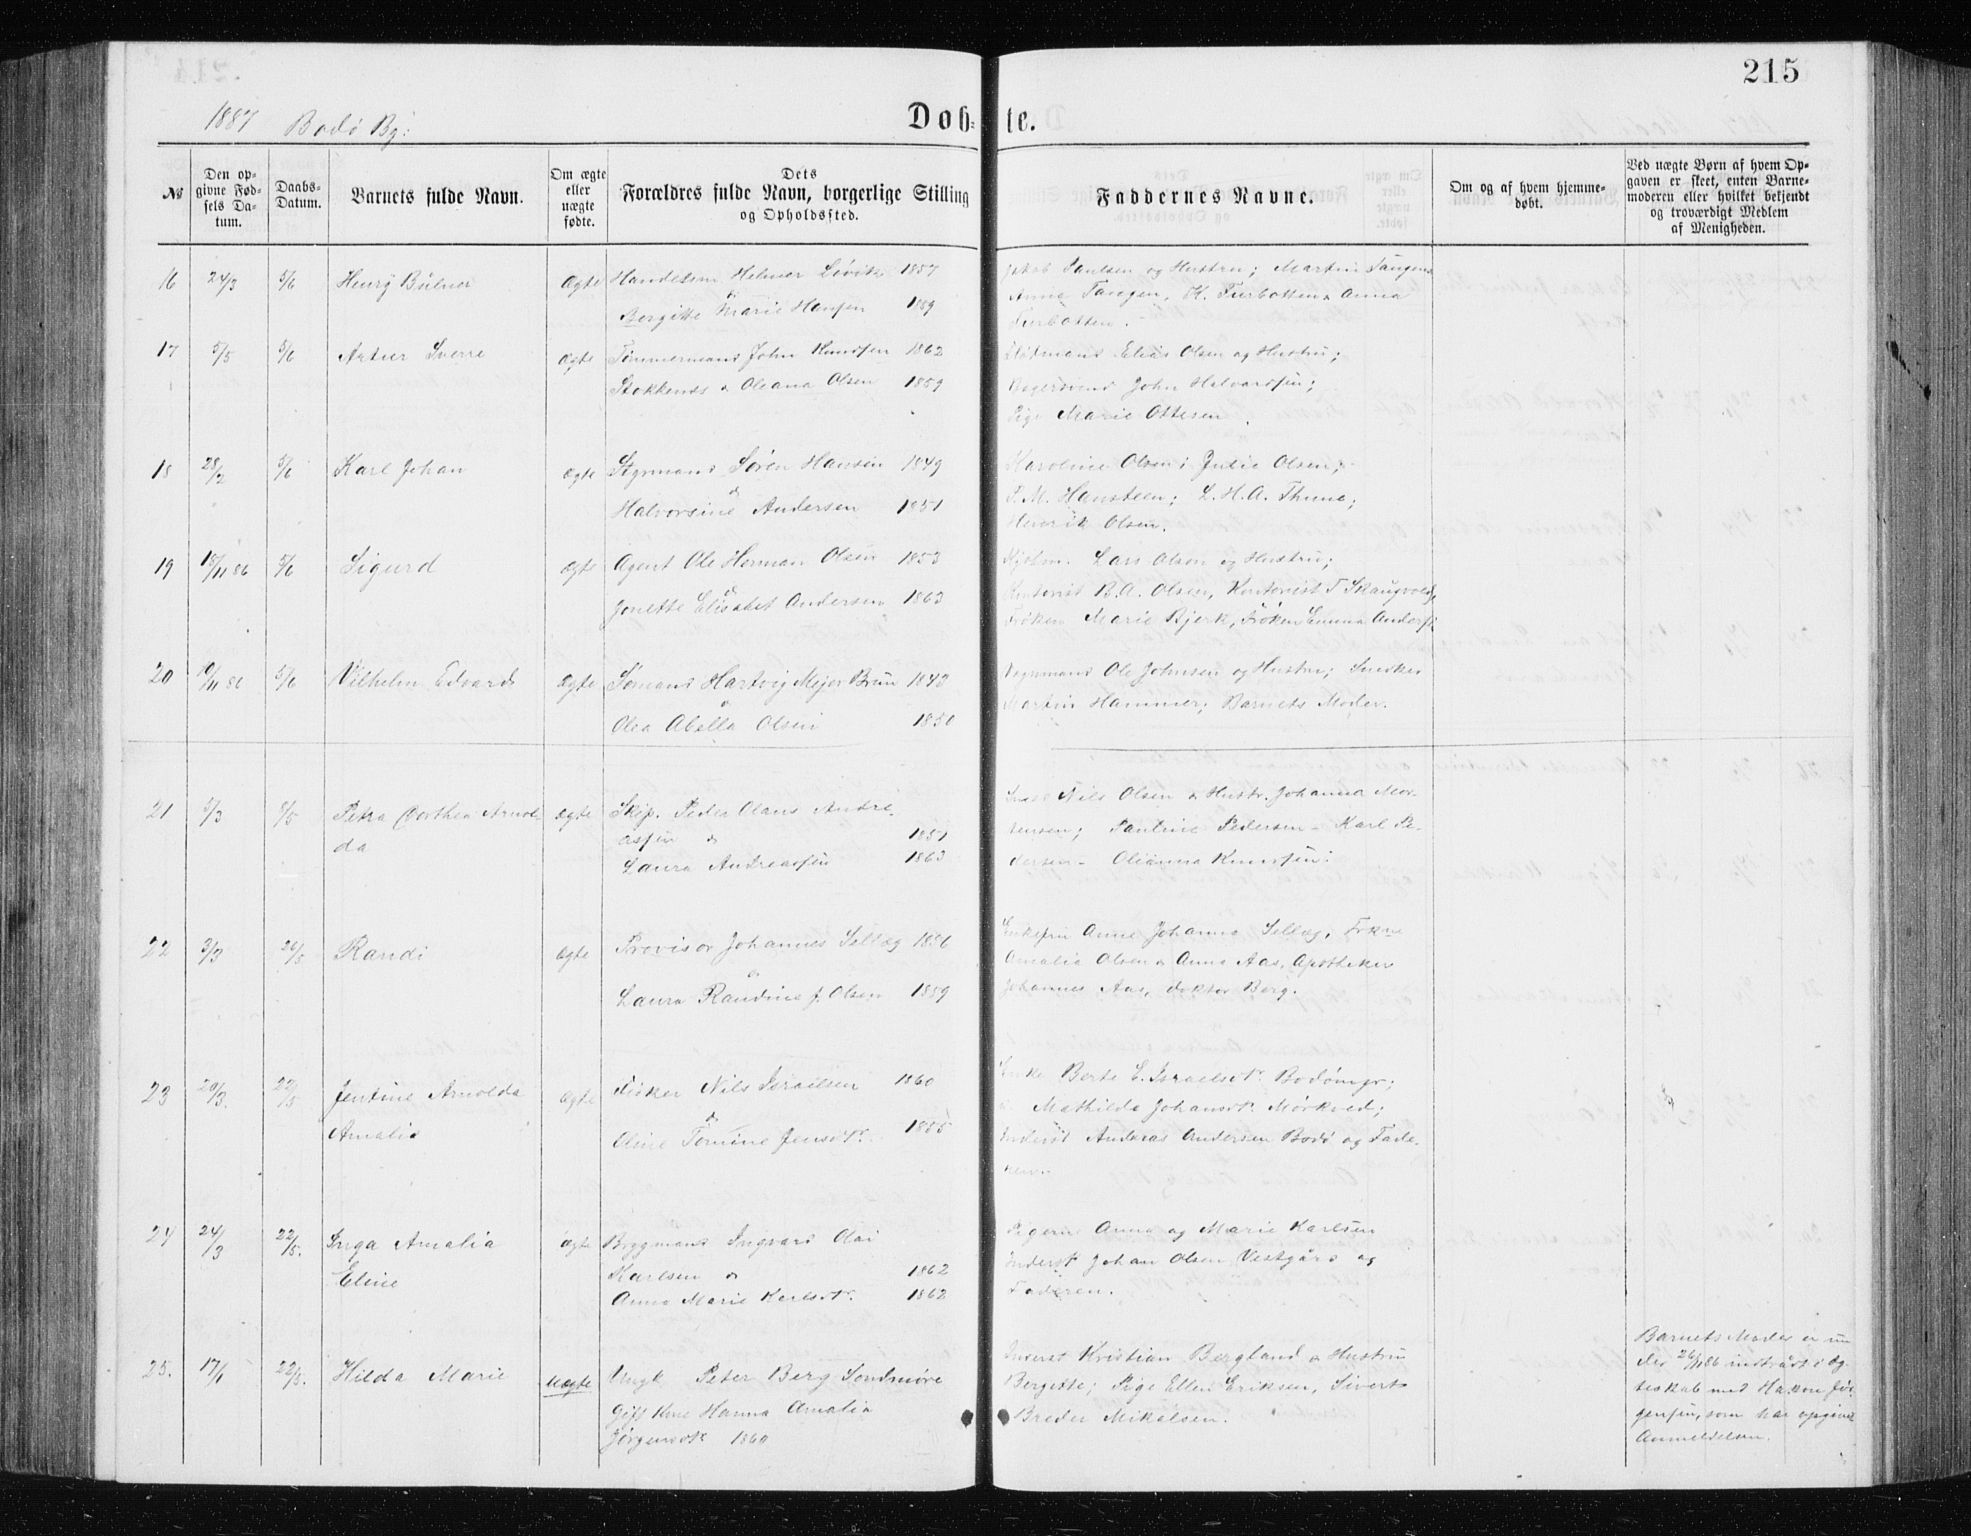 215
1887 Bodø By:
Døb- te.
№
Den op-
givne Fød-
sels Da-
tum.
Daabs-
Datum.
Barnets fulde Navn.
Om ægte
eller
uægte
fødte.
Dets
Forældres fulde Navn, borgerlige Stilling
og Opholdssted.
Faddernes Navne.
Om og af hvem hjemme-
døbt.
Ved uægte Børn af hvem Op-
gaven er skeet, enten Barne-
moderen eller hvilket bekjendt
og troværdigt Medlem
af Menigheden.
16 24/3 5/6 Henry Bülner Ægte Handelsm Helmer Løvik 1857
& Bergitte Marie Hansen 1859
Jakob Paulsen og Hustru; Martin Tangen
Anna Tangen, K. Turbotten & Anna
Turbotten.
17 5/5 5/6 Artur Sverre Ægte Tømmermand John Knudsen 1862
Stokkenes & Oleana Olsen 1859
Elias Olsen og Hustru;
John Halvorsen;
Pige Marie Ottesen
18 28/2 5/6 Karl Johan Ægte Styrmand Søren Hansen 1849
&
Halvorsine Andersen 1851
Karoline Olsen; Julie Olsen;
P. M. Hansteen; L. H. A. Thune;
Henrik Olsen.
19 18/11 86 5/6 Sigurd Ægte Agent Ole Herman Olsen 1853
&
Jonette Elisabet Andersen 1863
Kjøbm. Lars Olsen og Hustru;
Kontorist B. A. Olsen, Kontorist T Skaugvold,
Frøken Marie Bjerk, Frøken Emma Anders.
20 10/11 86 5/6 Vilhelm Edvard Ægte Sømand Hartvig Mejer Brun 1843
&
Olea Abella Olsen 1850
Vognmand Ole Johnsen og Hustru; Snedker
Martin Hammer; Barnets Moder.
21 5/3 8/5 Petra Dorthea Arnol-
da
Ægte Skip. Peder Olaus Andre-
assen & 1851
Laura Andreassen 1863
Nils Olsen & Hustr. Johanna Mor-
tensen; Pauline Pedersen - Karl Pe-
dersen - Olianna Knudsen:
22 3/3 26/5 Randi Ægte Provisor Johannes Sellæg 1856
&
Laura Randine J. Olsen 1859
Enkefru Anne Johanna Sellæg, Frkne
Amalia Olsen & Anna Aas, Apotheker
Johannes Aas, doktor Berg.
23 20/3. 22/5 Jentine Arnolda
Amalia
Ægte Fisker Nils Israelsen 1860
&
Eline Tomine Jensdtr. 1855
Enke Berte E. Israelsdtr. Bodømyr;
Mathilde Johansdtr. Mørkved;
Inderst Andreas Andersen Bodø og Fade-
ren.
24 24/3 22/5. Inga Amalia
Eline
Ægte Bryggmand Ingvard Olai
Karlsen & 1862
Anna Marie Karlsdtr. 1862
Pigerne Anna og Marie Karlsen
Inderst Johan Olsen Vestgård og
Faderen.
25. 17/1 22/5. Hilda Marie Uægte Ungk Peter Berg Søndmøre
Gift Kone Hanna Amalia
Jørgensdtr 1860
Inderst Kristian Bergland & Hustru
Bergitte; Pige Ellen Eriksen, Sivert
Breder Mikalsen.
Barnets Moder er un-
der 26/11 86 indtrådt i Æg-
teskab med Hakon Jør-
gensen, som har opgivet
Anmeldelsen.